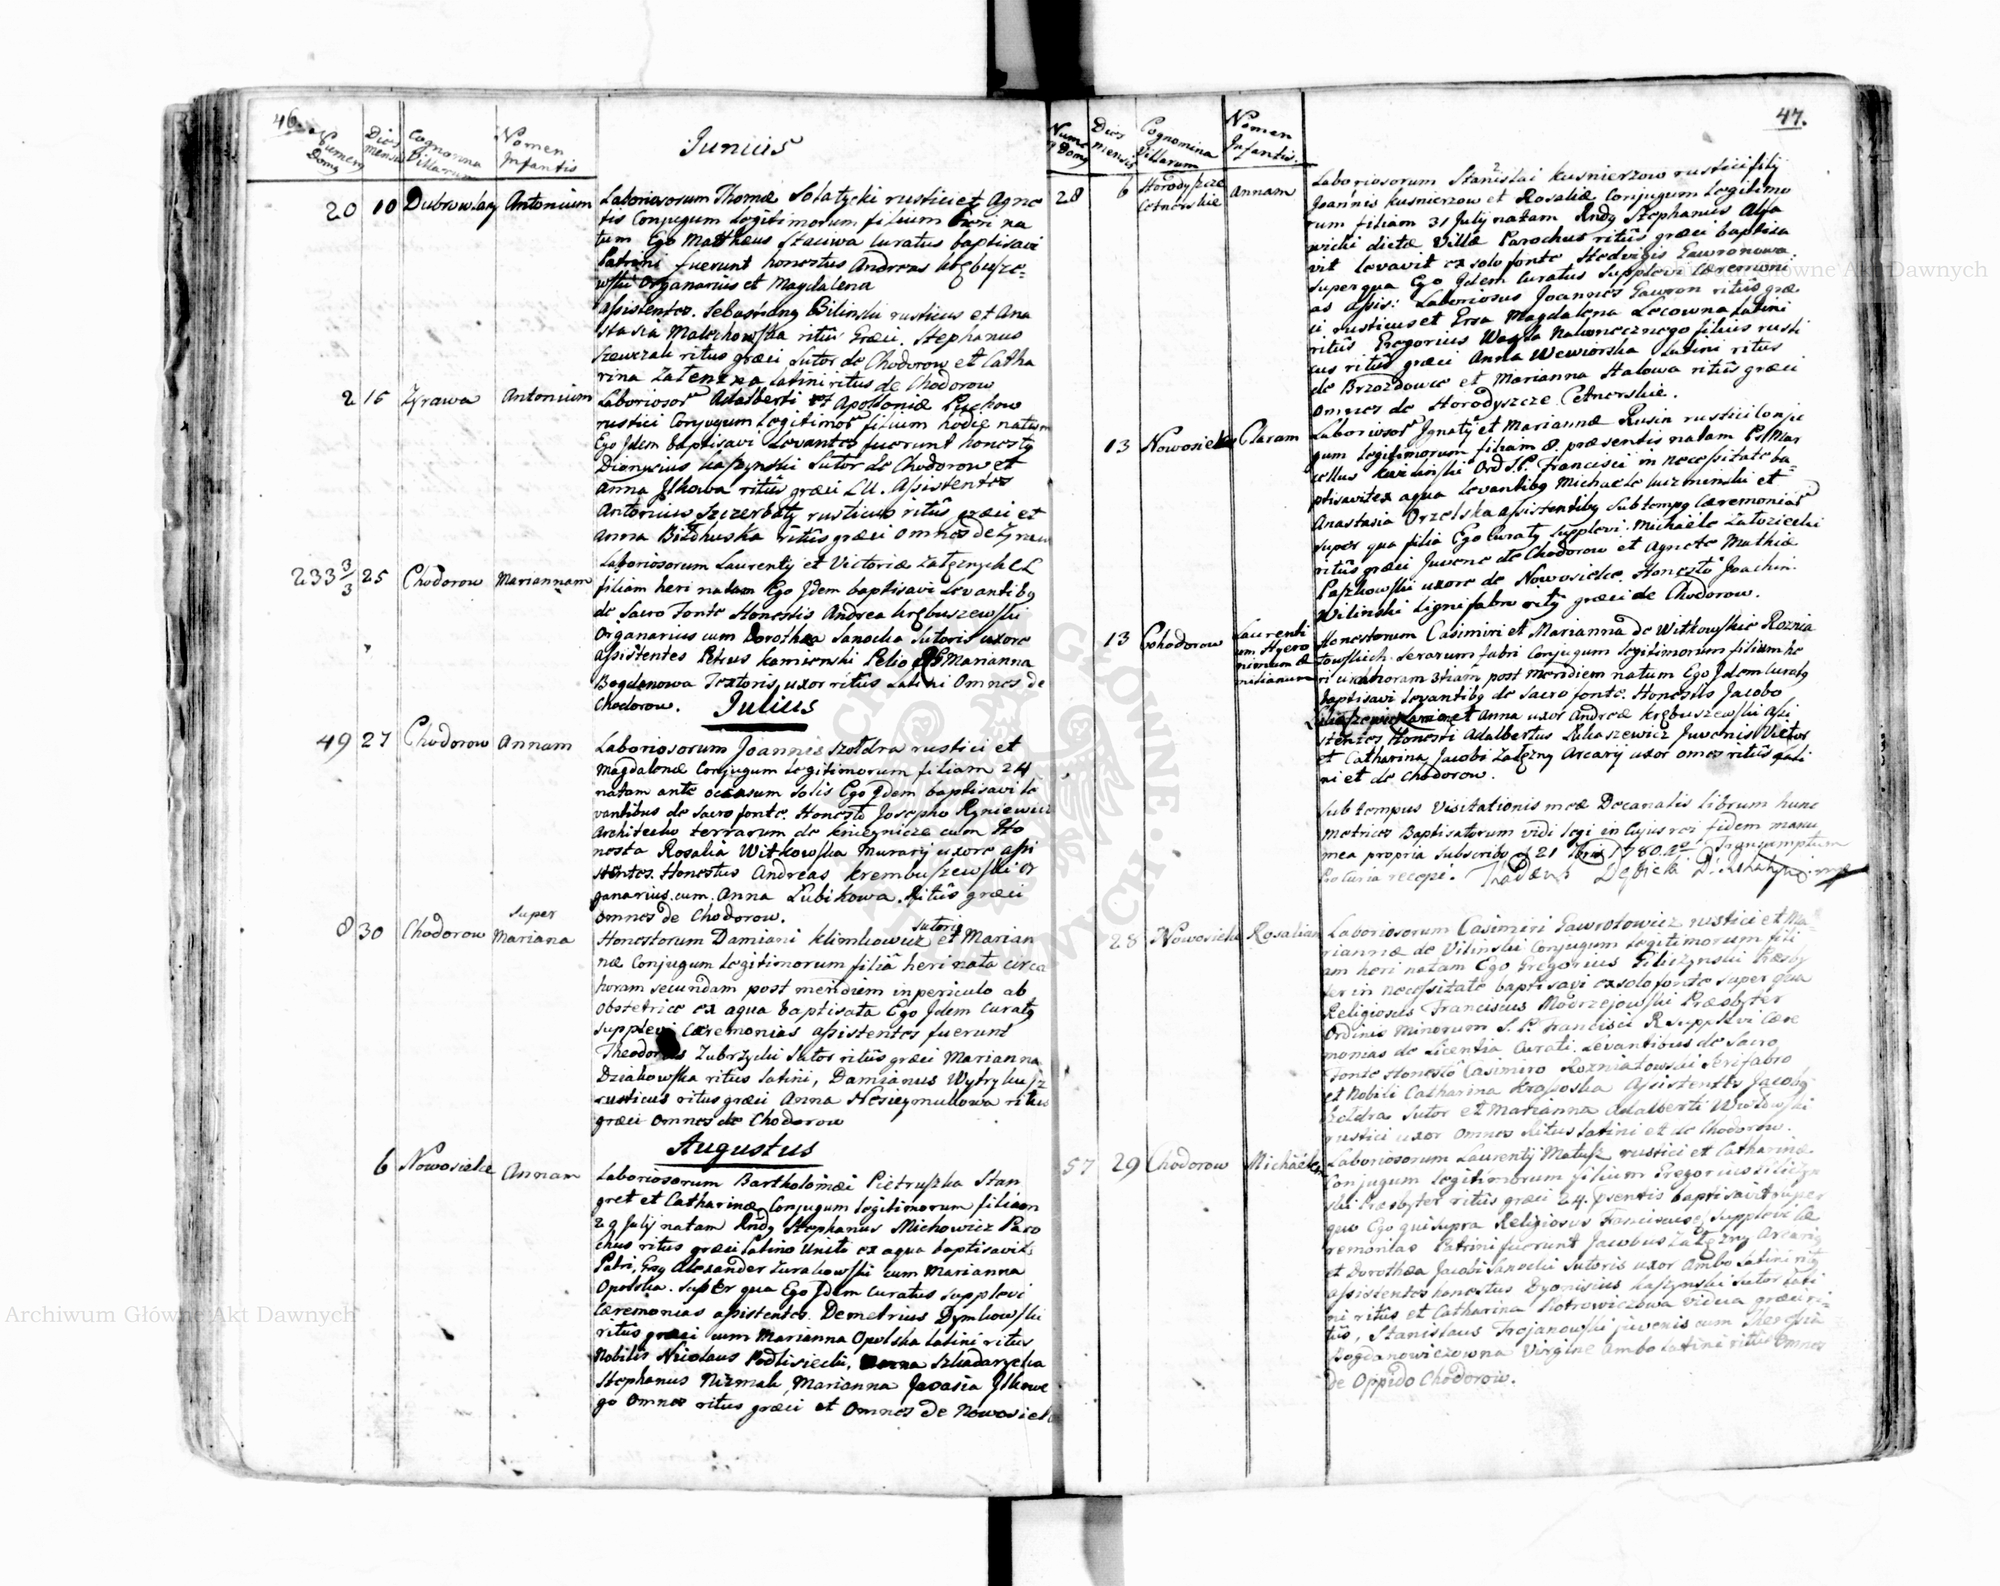 46.
Numerus Domus
Dies mensis
Cognomina Villarum
Nomen Infantis
Junius
20 10 Dubrowlany Antonium
Laboriosorum Thomæ Solatycki rustici et Agne
tis Conjugum legitimorum filium heri na
tum Ego Mathæus Staniwa Curatus baptisavi
Patrini fuerunt honestus Andreas Krębusze=
wski Organarius et Magdalena
assistentes. Sebastiang Bilinski rusticus et Ana
stasia Malechowska ritûs Græci. Stephanus
Szewczak ritus græci Sutor de Chodorow et Catha
rina Zalenzna Latini ritus de Chodorow
2 16 Zyrawa Antonium
Laboriosor Adalberti et Apolloniæ Puchow
rustici Conjugum legitimor filium hodie natum
Ego Idem baptisavi Levantes fuerunt honesty
Dionysius Kaszynski Sutor de Chodorow et
Anna Ilkowa ritûs græci LU. Assistentes
Antonius Szczerbaty rusticus ritûs græci et
Anna ritûs græci omnes de Zyraw
233 3/3 25 Chodorow Mariannam
Laboriosorum Laurentij et Victoriæ Załęznych CL
filiam heri natam Ego Idem baptisavi Levantibg
de Sacro Fonte Honestis Andrea Krębuszewski
Organarius cum Dorothea Sanocka Sutoris uxore
assistentes Petrus Kamienski Pelio et Marianna
Bogdanowa Textoris uxor ritûs Latini Omnes de
Chodorow.
Julius
49 27 Chodorow Annam
Laboriosorum Joannis Szoldra rustici et
Magdalenæ Conjugum legitimorum filiam 24
natam ante occasum solis Ego Idem baptisavi le
vantibus de sacro fonte. Honesto Josepho Ryniewicz
Architecto terrarum de cum Ho
nesta Rosalia Witkowska Murarij uxore assi
stentes. Honestus Andreas Krembuszewski Or
ganarius cum Anna Lubikowa. Ritûs græci
Omnes de Chodorow.
8 30 Chodorow super Mariana
Sutoris
Honestorum Damiani Klimkowicz et Marian
næ Conjugum legitimorum filiâ heri nata circa
horam secundam post meridiem in periculo ab
obstetrice ex aqua baptisata Ego Idem Curatg
supplevi Cæremonias assistentes fuerunt
Theodorus Zubrzycki Sutor ritûs græci Marianna
Dziakowska ritûs latini, Damianus Wytrykusz
rusticus ritus græci Anna ritus
græci omnes de Chodorow
Augustus
6 Nowosielce Annam
Laboriosorum Bartholomæi Pietruszka Stan
gret et Catharinæ Conjugum legitimorum filiam
29 Julij natam Rndg Stephanus Michowicz Paro
chus ritus græci Latino Unito ex aqua baptisavit
Patri, Gsg Alexander Zurakowski cum Marianna
Opolska. Super qua Ego Idem Curatus supplevi
Cæremonias assistentes Demetrius Dymkowski
ritûs græci cum Marianna Opolska latini ritus
Nobilis Nicolaus Podlisiecki, Szkadarycka
Stephanus Nizmak, Marianna Javasia Ilkowe
go Omnes ritus græci et Omnes de Nowosielce
47.
Numerus Domg
Dies mensis
Cognomina Villarum
Nomen Infantis.
28 6 Horodyszcze Cetnerskie Annam
Laboriosorum Stanislai Kusnierzow rustici filij
Joannis Kusnierzow et Rosaliæ Conjugum legitimo
rum filiam 31 Julij natam Rndg Stephanus Alja
wicki dictæ Villæ Parochus ritûs græci baptisa
vit levavit ex solo fonte Hedvigis Gawronowa.
super qua Ego Idem Curatus supplevi Cæremoni
as assis: Laboriosus Joannes Gawron ritus græ
ci rusticus et Gsa Magdalena Lecowna Latini
ritûs Gregorius Wagla Nakonecznego filius rusti
cus ritûs græci Anna Wewiorska Latini ritus
de Brzozdowce et Marianna Halowa ritûs græci
omnes de Horodyszcze Cetnerskie.
13 Nowosielce Claram
Laboriosor Ignatij et Mariannæ Rusin rustici Conju
gum legitimorum filiam 8. præsentis natam Ps Mar
cellus Ord S.P. Francisci in necessitate ba=
ptisavit ex aqua Levantibg Michaele Kuzminski et
Anastasia Orzelska assistentibg sub tempg Cæremoniar
super qua filia Ego Curatg supplevi. Michaële Zatoziecki
ritûs græci Juvene de Chodorow et Agnete Mathiæ
Paszkowski uxore de Nowosielce. Honesto Joachim
Wilinski Lignifabro ritg græci de Chodorow.
13 Chodorow Laurenti um Hyero nimum Æ milianum
Honestorum Casimiri et Marianna de Witkowskie Roznia
towskich Serarum fabri Conjugum legitimorum filium he
ri circa horam 3tiam post meridiem natum Ego Idem Curatg
baptisavi Levantibg de Sacro fonte. Honestis Jacobo
Lukaszewicz et Anna uxor Andreæ Krębuszewski Assi
stentes Honesti Adalbertus Lukaszewicz Juvenis Vietor
et Catharina Jacobi Załęzny Arcarij uxor omes ritûs Lati
ni et de Chodorow.
Sub tempus Visitationis meæ Decanalis librum hunc
Metrices Baptisatorum vidi legi in Cujus rei fidem manu
mea propria subscribo d 21 7bris 1780 Transumptum
pro Curia recepi. Thadeus Dębicki
28 Nowosielce Rosaliam
Laboriosorum Casimiri Gawrolowicz rustici et Ma=
riannæ de Vilinski Conjugum legitimorum fili
am heri natam Ego Gregorius Filiczynski Præsby
ter in necessitate baptisavi ex solo fonte super qua
Religiosus Franciscus Modrzejowski Præsbyter
Ordinis Minorum S. P. Francisci R supplevi Cære
monias de Licentia Curati. Levantibus de Sacro
Fonte Honesto Casimiro Rozniatowski ferifabro
et Nobili Catharina Krososka Assistentes Jacobg
Szoldra Sutor et Marianna Adalberti Wislowski
rustici uxor Omnes Ritus latini et de Chodorow.
57 29 Chodorow Michaëlem
Laboriosorum Laurentij Matusz rustici et Catharinæ
Conjugum legitimorum filium Gregorius Filiczyn
ski Præsbyter ritus græci 24. psentis baptisavit super
quo Ego qui supra Religiosus Franciscus supplevi Cæ
remonias Patrini fuerunt Jacobus Załęzny Arcarig
et Dorothea Jacobi Sanocki Sutoris uxor Ambo Latini ritg
assistentes honestus Dyonisius Kaszynski Sutor Lati
ni ritus et Catharina Piotrowiczowa vidua græci ri=
tûs, Stanislaus Trojanowski juvenis cum Theresia
Bogdanowiczowna Virgine ambo Latini ritus Omnes
de Oppido Chodorow.
Archiwum Główne Akt Dawnych
Archiwum Główne Akt Dawnych